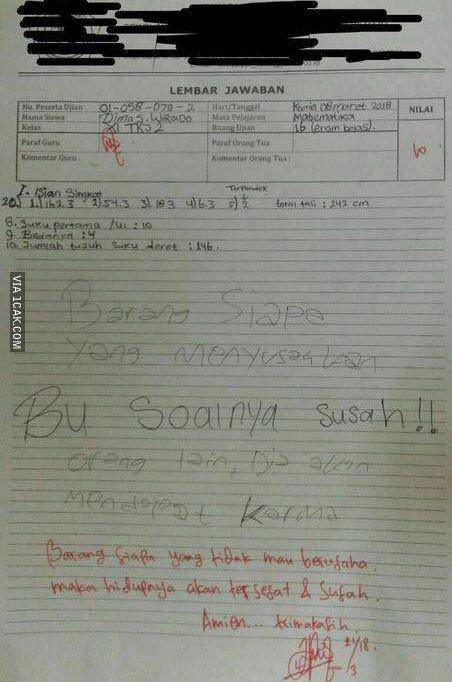 LEMBAR JAWABAN
No. Peserta Ujian 01-058-079-2 Hari/Tanggal Kamis 08 maret 2018 NILAI
Nama Siswa Dimas. Wiraldo Mata Pelajaran Matematika
Kelas XI TKJ 2 Ruang Ujian 16 (enam belas). 10
Paraf Guru Paraf Orang Tua
Komentar Guru : Komentar Orang Tua :
I. Isian Singkat Terpendek
20.) 1.) 162.3 2) 54.3 3) 18 3 4) 6.3 5) 2 total tali : 242 cm
8. Suku pertama /U1 : 10
9. Bedanya : 4
10. Jumlah tujuh suku deret : 146.
Barang Siapa
yang menyusahkan
Bu Soalnya susah!!
orang lain, Dia akan
mendapat karma
Barang siapa yang tidak mau berusaha.
maka hidupnya akan tersesat & Susah.
Amien... trimakasih
21/18.
3
VIA 1CAK.COM